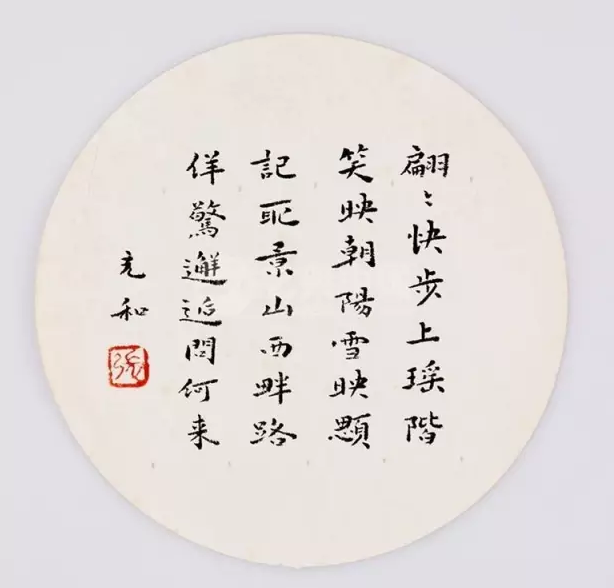 翩〻快步上瑶階
笑映朝陽雪映顋
記取景山西畔路
佯驚邂逅問何来
充和
張